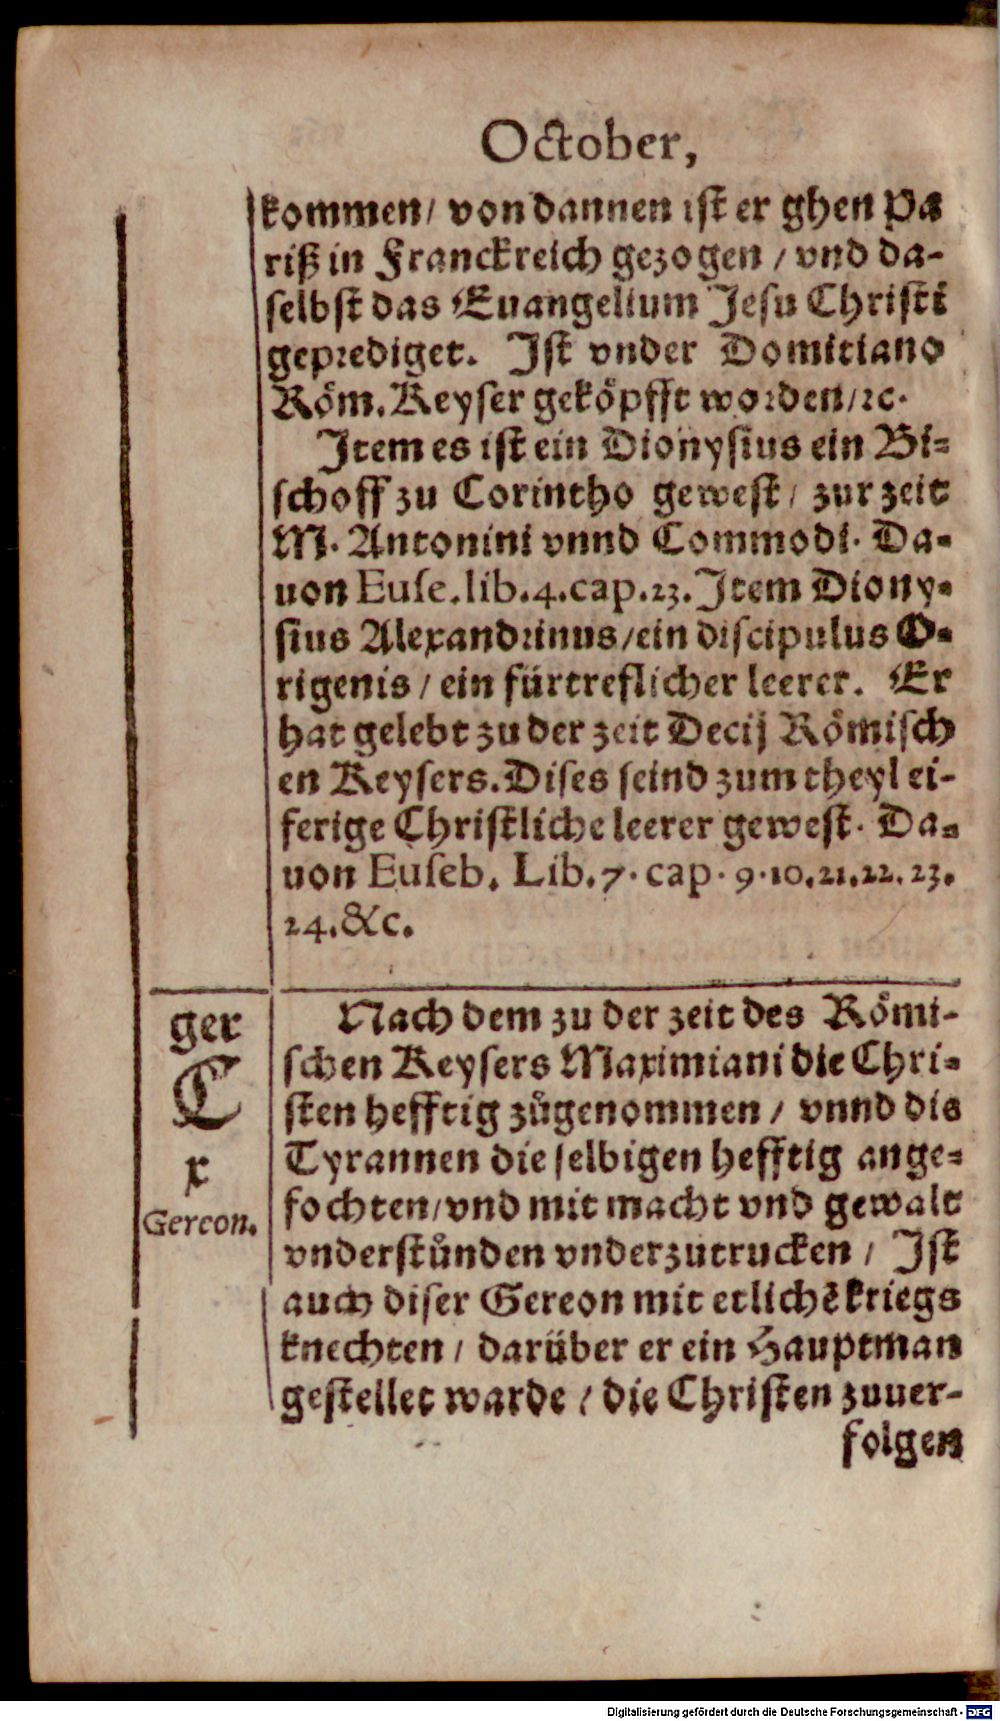 October,
kommen/ von dannen ist er ghen Pa
riß in Franckreich gezogen / vnd da-
selbst das Euangelium Jesu Christi
geprediget. Jst vnder Domitiano
Röm. Keyser geköpfft worden/ꝛc.
Jtem es ist ein Dionysius ein Bi-
schoff zu Corintho gewest/ zur zeit
M. Antonini vnnd Commodi. Da-
uon Euse. lib. 4. cap. 23. Jtem Diony-
sius Alexandrinus/ein discipulus O-
rigenis / ein fürtreflicher leerer. Er
hat gelebt zu der zeit Decij Römisch
en Keysers. Dises seind zum theyl ei-
ferige Christliche leerer gewest. Da-
uon Euseb. Lib. 7. cap. 9. 10. 21. 22. 23.
24. &c.
ger
C
x
Gereon.
Nach dem zu der zeit des Römi-
schen Keysers Maximiani die Chri-
sten hefftig zůgenommen / vnnd dis
Tyrannen die selbigen hefftig ange-
fochten/vnd mit macht vnd gewalt
vnderstůnden vnderzutrucken / Jst
auch diser Gereon mit etlichē kriegs
knechten / darüber er ein Hauptman
gestellet warde / die Christen zuuer-
folgen
Digitalisierung gefördert durch die Deutsche Forschungsgemeinschaft - DFG